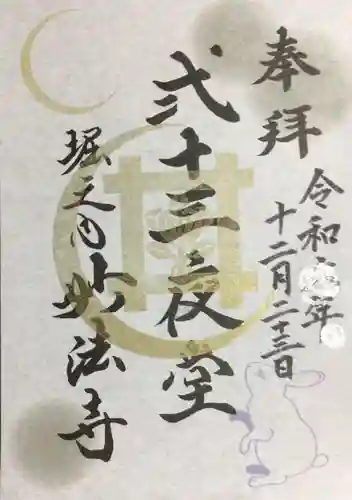 奉拝
令和六年
十二月二十三日
弐十三夜堂
堀之内妙法寺